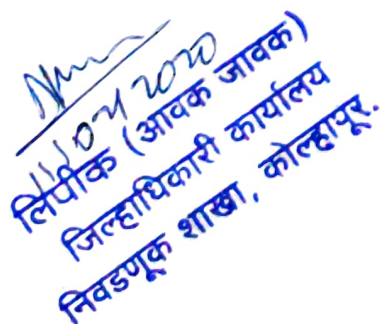 लिपीक (आवक जावक)
जिल्हाधिकारी कार्यालय
निवडणूक शाखा, कोल्हापूर.